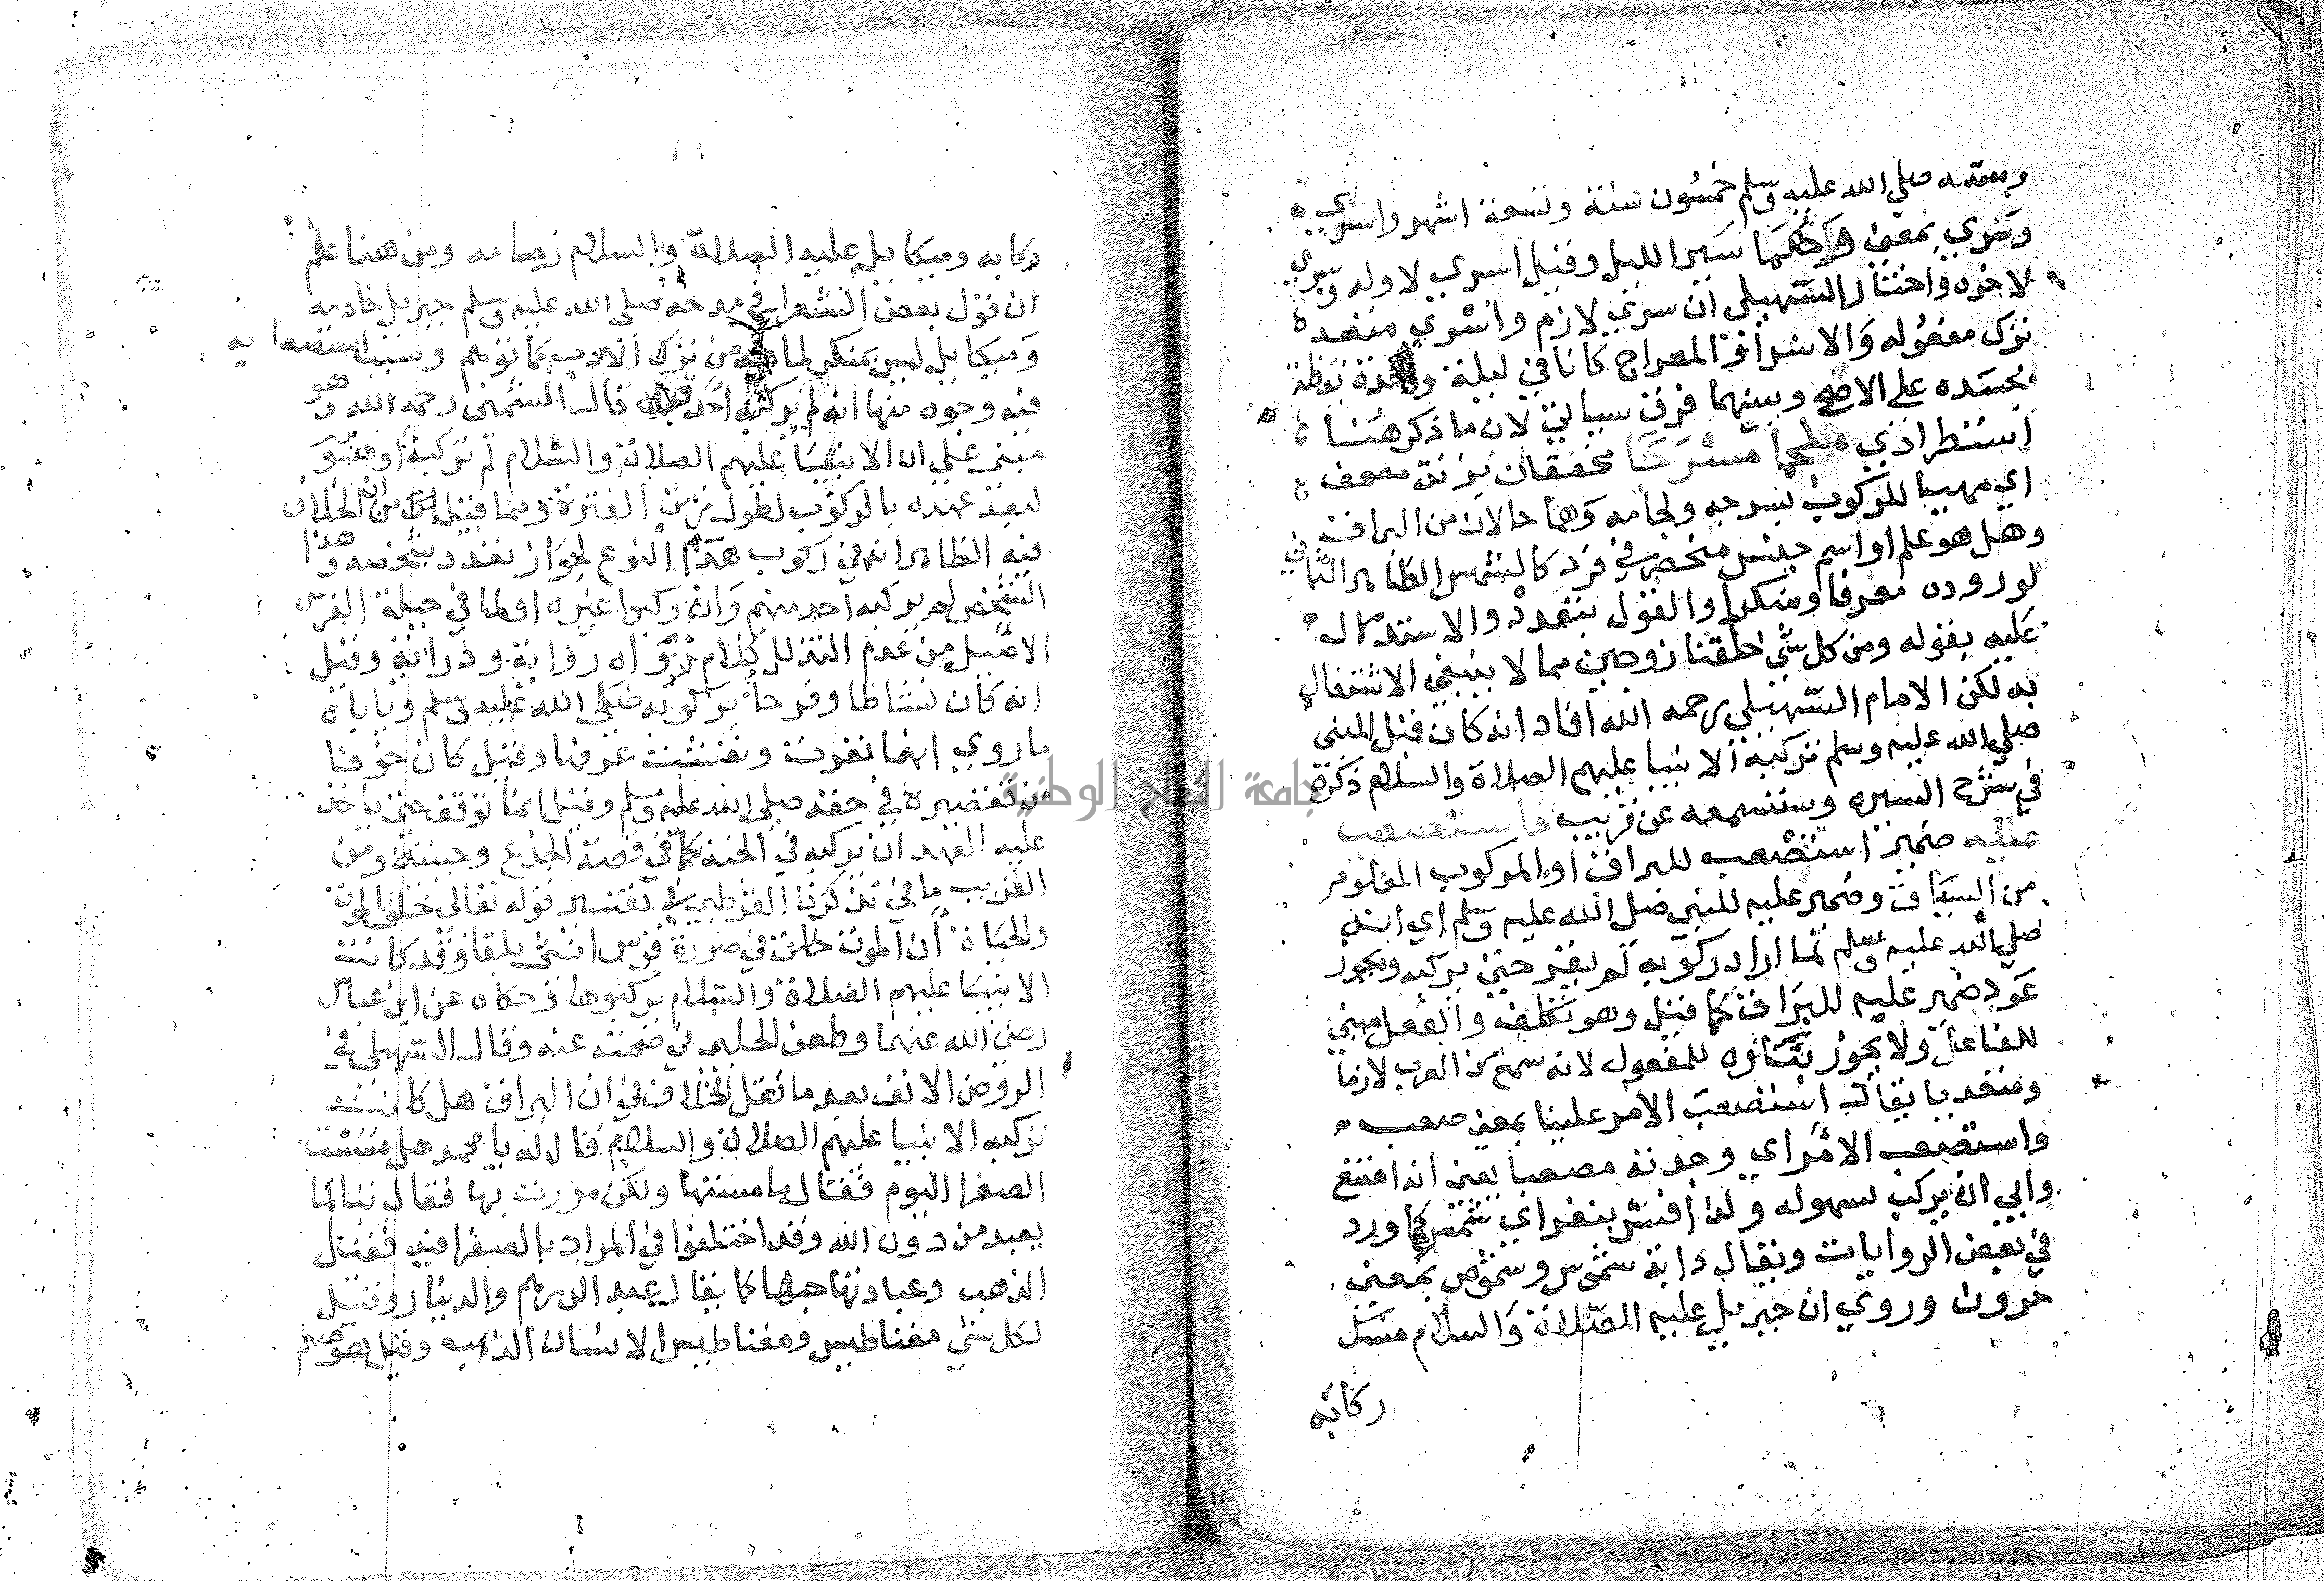 وسنه صلى الله عليه وسلم خمسون سنة وتسعة اشهر واسري
وسري بمعنى وكلاهما سير الليل وقيل اسري لاوله وسري
لاخره واختار السهيلي ان سري لازم واسري متعد
ترك مفعوله والاسراء والمعراج كانا في ليلة واحدة يقظة
بجسده على الاصح وبينهما فرق سياتي لان ما ذكر هنا
استطرادي ملجما مسرجا مخففان بزنة
اي مهييا للركوب بسرجه ولجامه وهما حالان من البراق
وهل هو علم او اسم جنس منحصر في فرد كالشمس الظاهر الثاني
لوروده معرفا ومنكرا والقول بتعدده والاستدلال
عليه بقوله ومن كل شي خلقنا زوجين مما لا ينبغي الاشتغال
به لكن الامام السهيلي رحمه الله افاد انه كان قبل النبي
صلى الله عليه وسلم تركبه الانبيا عليهم الصلاة والسلام ذكره
في شرح السيره وستسمعه عن قريب فاستصعب
عليه ضمير استصعب للبراق او المركوب المعلوم
من السياق وضمير عليه للنبي صلى الله عليه وسلم اي انه
صلى الله عليه وسلم لما اراد ركوبه لم يقر حتى يركبه ويجوز
عود ضمير عليه للبراق كما قيل وهو تكلف والفعل مبني
للفاعل ولا يجوز بناؤه للمفعول لانه سمع من العرب لازما
ومتعديا يقال استصعب الامر علينا بمعنى صعب
واستصعب الامر اي وجدته مصعبا يعني انه امتنع
وابي ان يركب بسهوله ولذا فسر بنفر اي شمس كما ورد
في بعض الروايات ويقال دابة شموس وشموص بمعنى
حرون وروي ان جبريل عليه الصلاة والسلام مسك
ركابه
ركابه وميكايل عليه الصلاة والسلام زمامه ومن هنا علم
ان قول بعض الشعرا في مدحه صلى الله عليه وسلم جبريل خادمه
وميكايل ليس بمنكر لما فيه من ترك الادب كما توهم وسبب استصعابه
فيه وجوه منها انه لم يركبه احد قبله قال الشمني رحمه الله وهو
مبني على ان الانبيا عليهم الصلاة والسلام لم تركبه او هو
لبعد عهده بالركوب لطول زمن الفترة وما قيل من ان الخلاف
فيه الظاهر انه في ركوب هذا النوع لجواز تعدد شخصه وهذا
الشخص لم يركبه احد منهم وان ركبوا غيره او لما في جبلة الفرس
الاصيل من عدم التذلل كلام تراه رواية ودراية وقيل
انه كان نشاطا وفرحا بركوبه صلى الله عليه وسلم وياباه
ما روي انها نفرت وتفتتت عرقها وقيل كان خوفا
من تقصيره في حقه صلى الله عليه وسلم وقيل انما توقف حتى ياخذ
عليه العهد ان يركبه في الجنة كما في قصة الجذع وحنينه ومن
الغريب ما في تذكرة القرطبي في تفسير قوله تعالى خلق الموت
والحياة ان الموت خلق في صورة فرس انثى بلقا وقد كانت
الانبيا عليهم الصلاة والسلام يركبوها وحكاه عن ابن عباس
رضي الله عنهما وطعن الحليمي في صحته عنه وقال السهيلي في
الروض الانف بعد ما نقل الخلاف في ان البراق هل كانت
تركبه الانبيا عليهم الصلاة والسلام قال له يا محمد هل مسست
الصفرا اليوم فقال ما مسستها ولكن مررت بها فقال تبا لما
يعبد من دون الله وقد اختلفوا في المراد بالصفرا فيه فقيل
الذهب وعبادتها حبها كما يقال عبد الدرهم والدينار وقيل
لكل شي مغناطيس ومغناطيس الانسان الذهب وقيل هو صنم
جامعة النجاح الوطنية